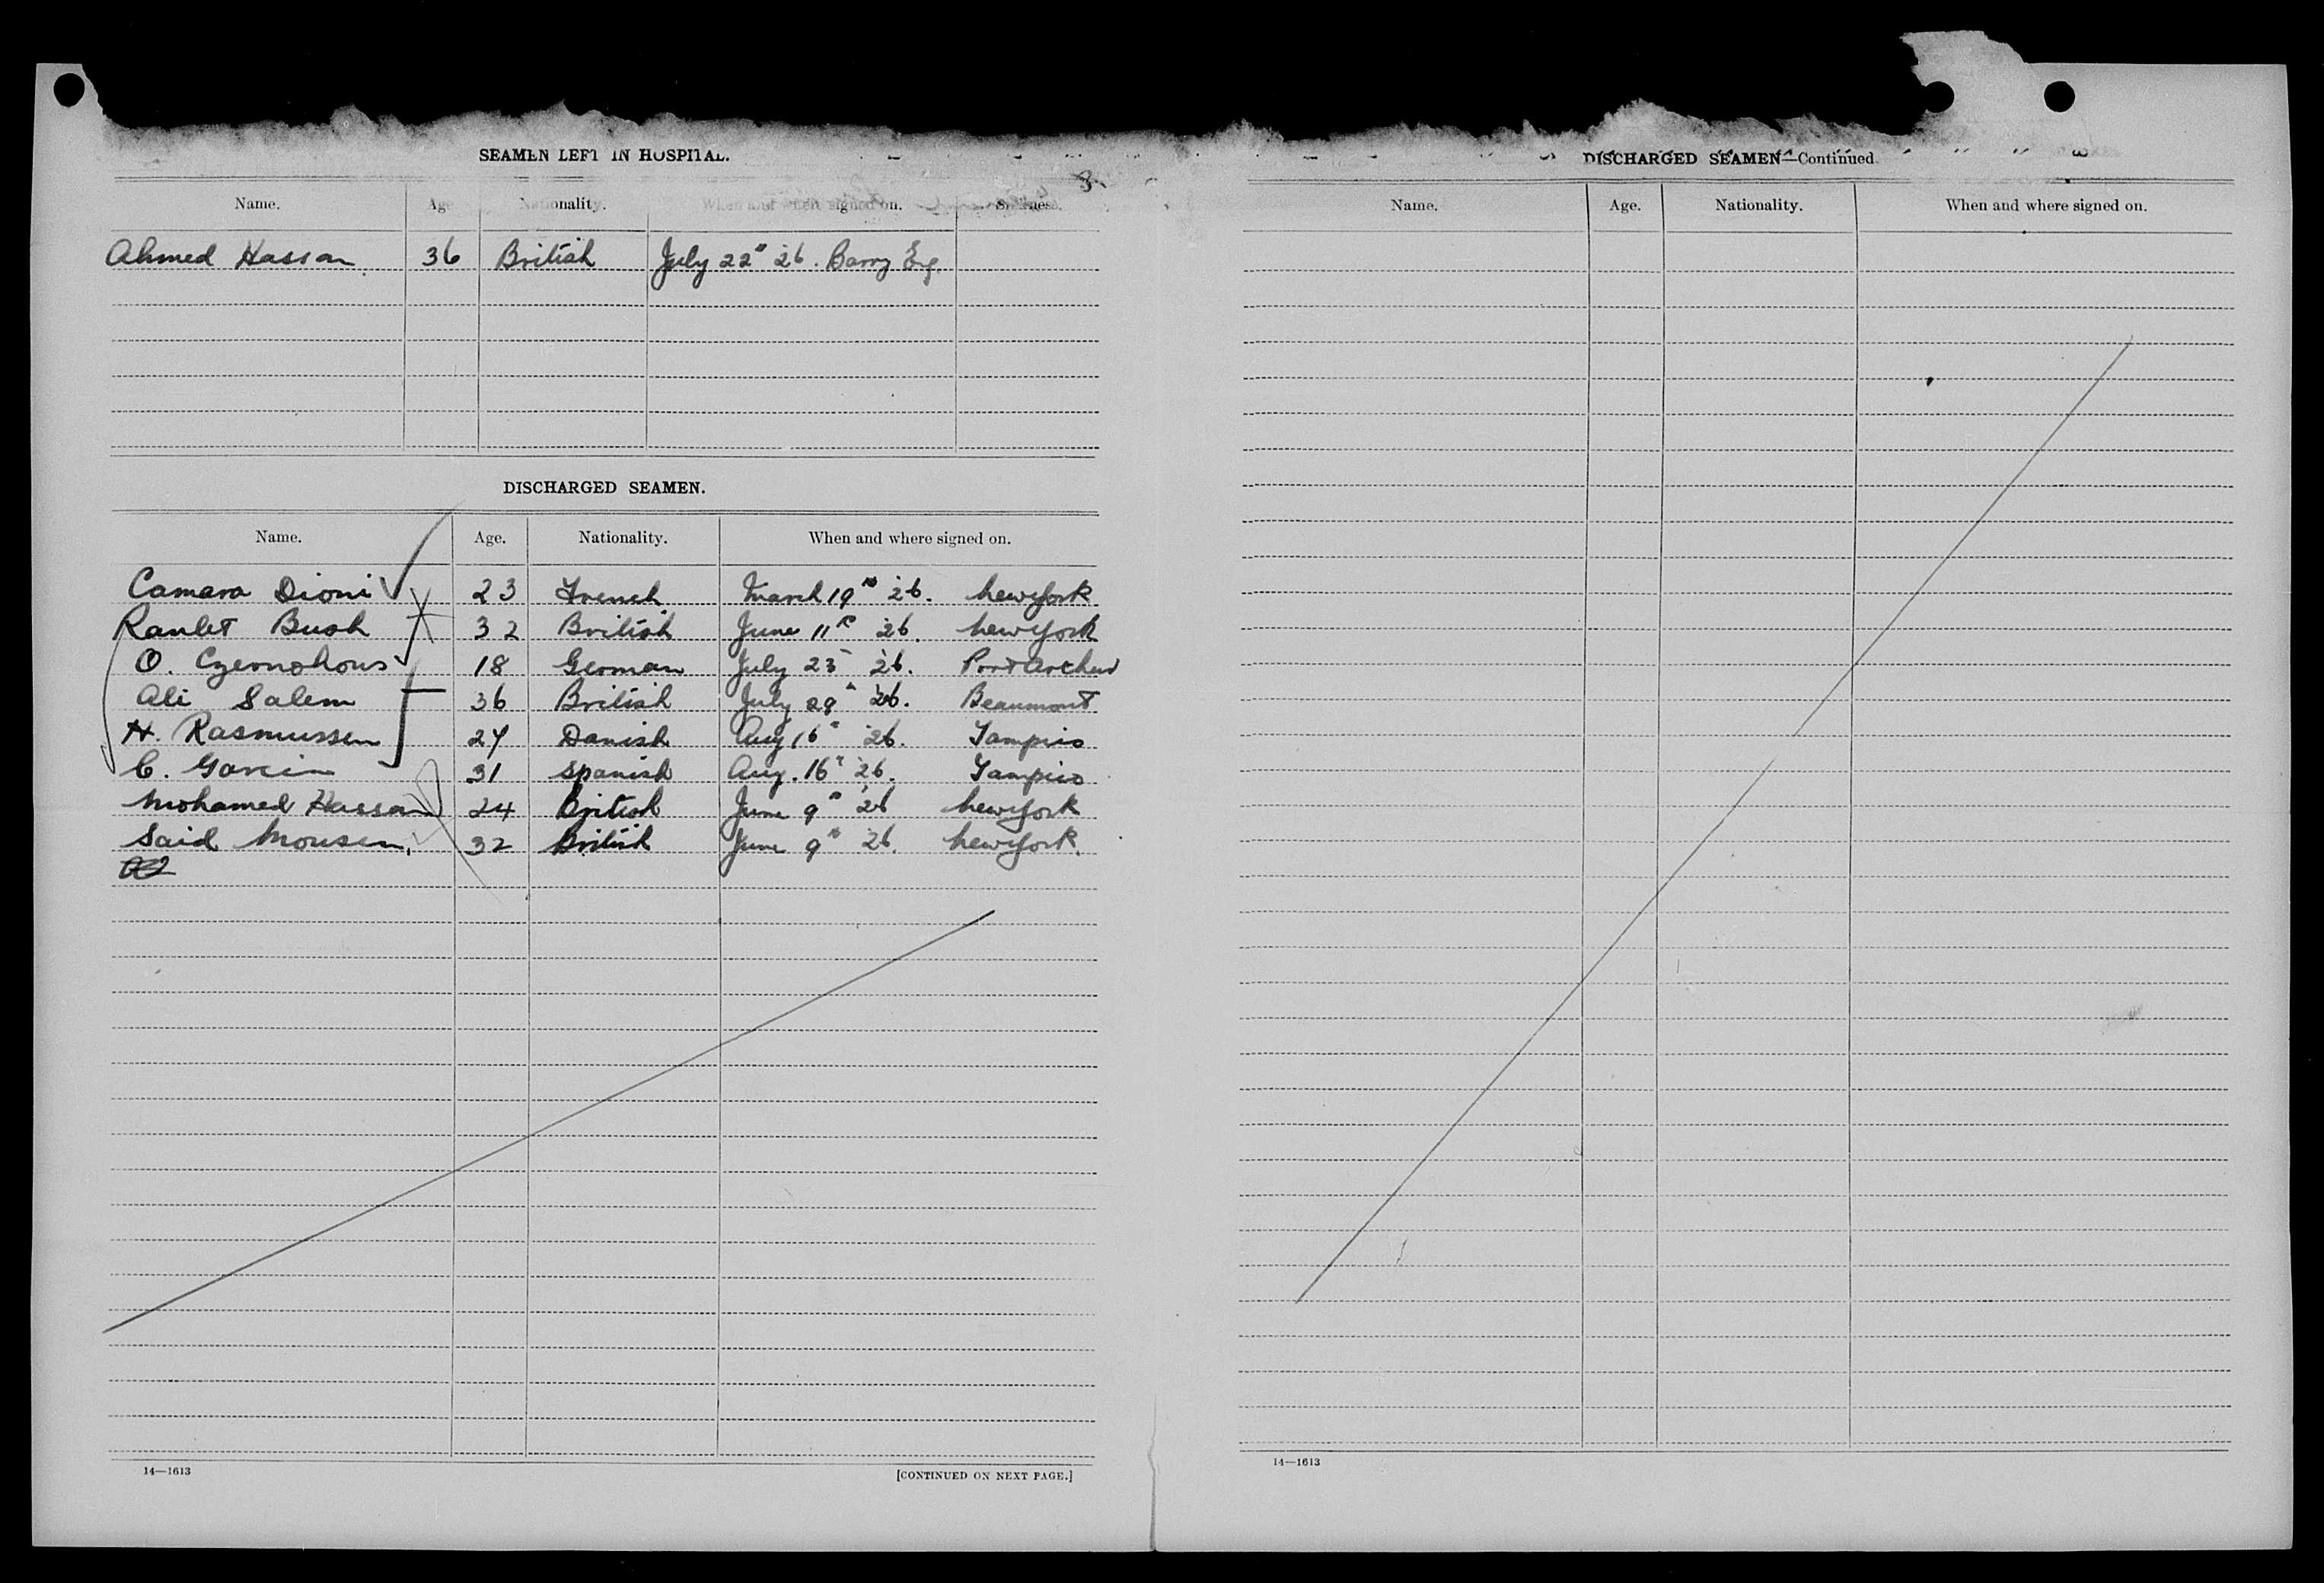 SEAMEN LEFT IN HOSPITAL.
Name. Age Nationality. When and where signed on. Sickness.
Ahmed Hassan 36 British July 22" 26. Barry Eng.
DISCHARGED SEAMEN.
Name. Age. Nationality. When and where signed on.
Camara Dioni 23 French March 19th 26. New York
Ranlet Bush 32 British June 11th 26. New York
O. Czernohous 18 German July 23 26. Port Arthur
Ali Salem 36 British July 28" 26. Beaumont
H. Rasmussen 27 Danish Aug 16" 26. Tampico
C. Garcin 31 Spanish Aug. 16" 26. Tampico
Mohamed Hassan 24 British June 9th 26 New York
Said Mousen. 32 British June 9th 26. New York.
14—1613 [CONTINUED ON NEXT PAGE.]
DISCHARGED SEAMEN—Continued
Name. Age. Nationality. When and where signed on.
14—1613